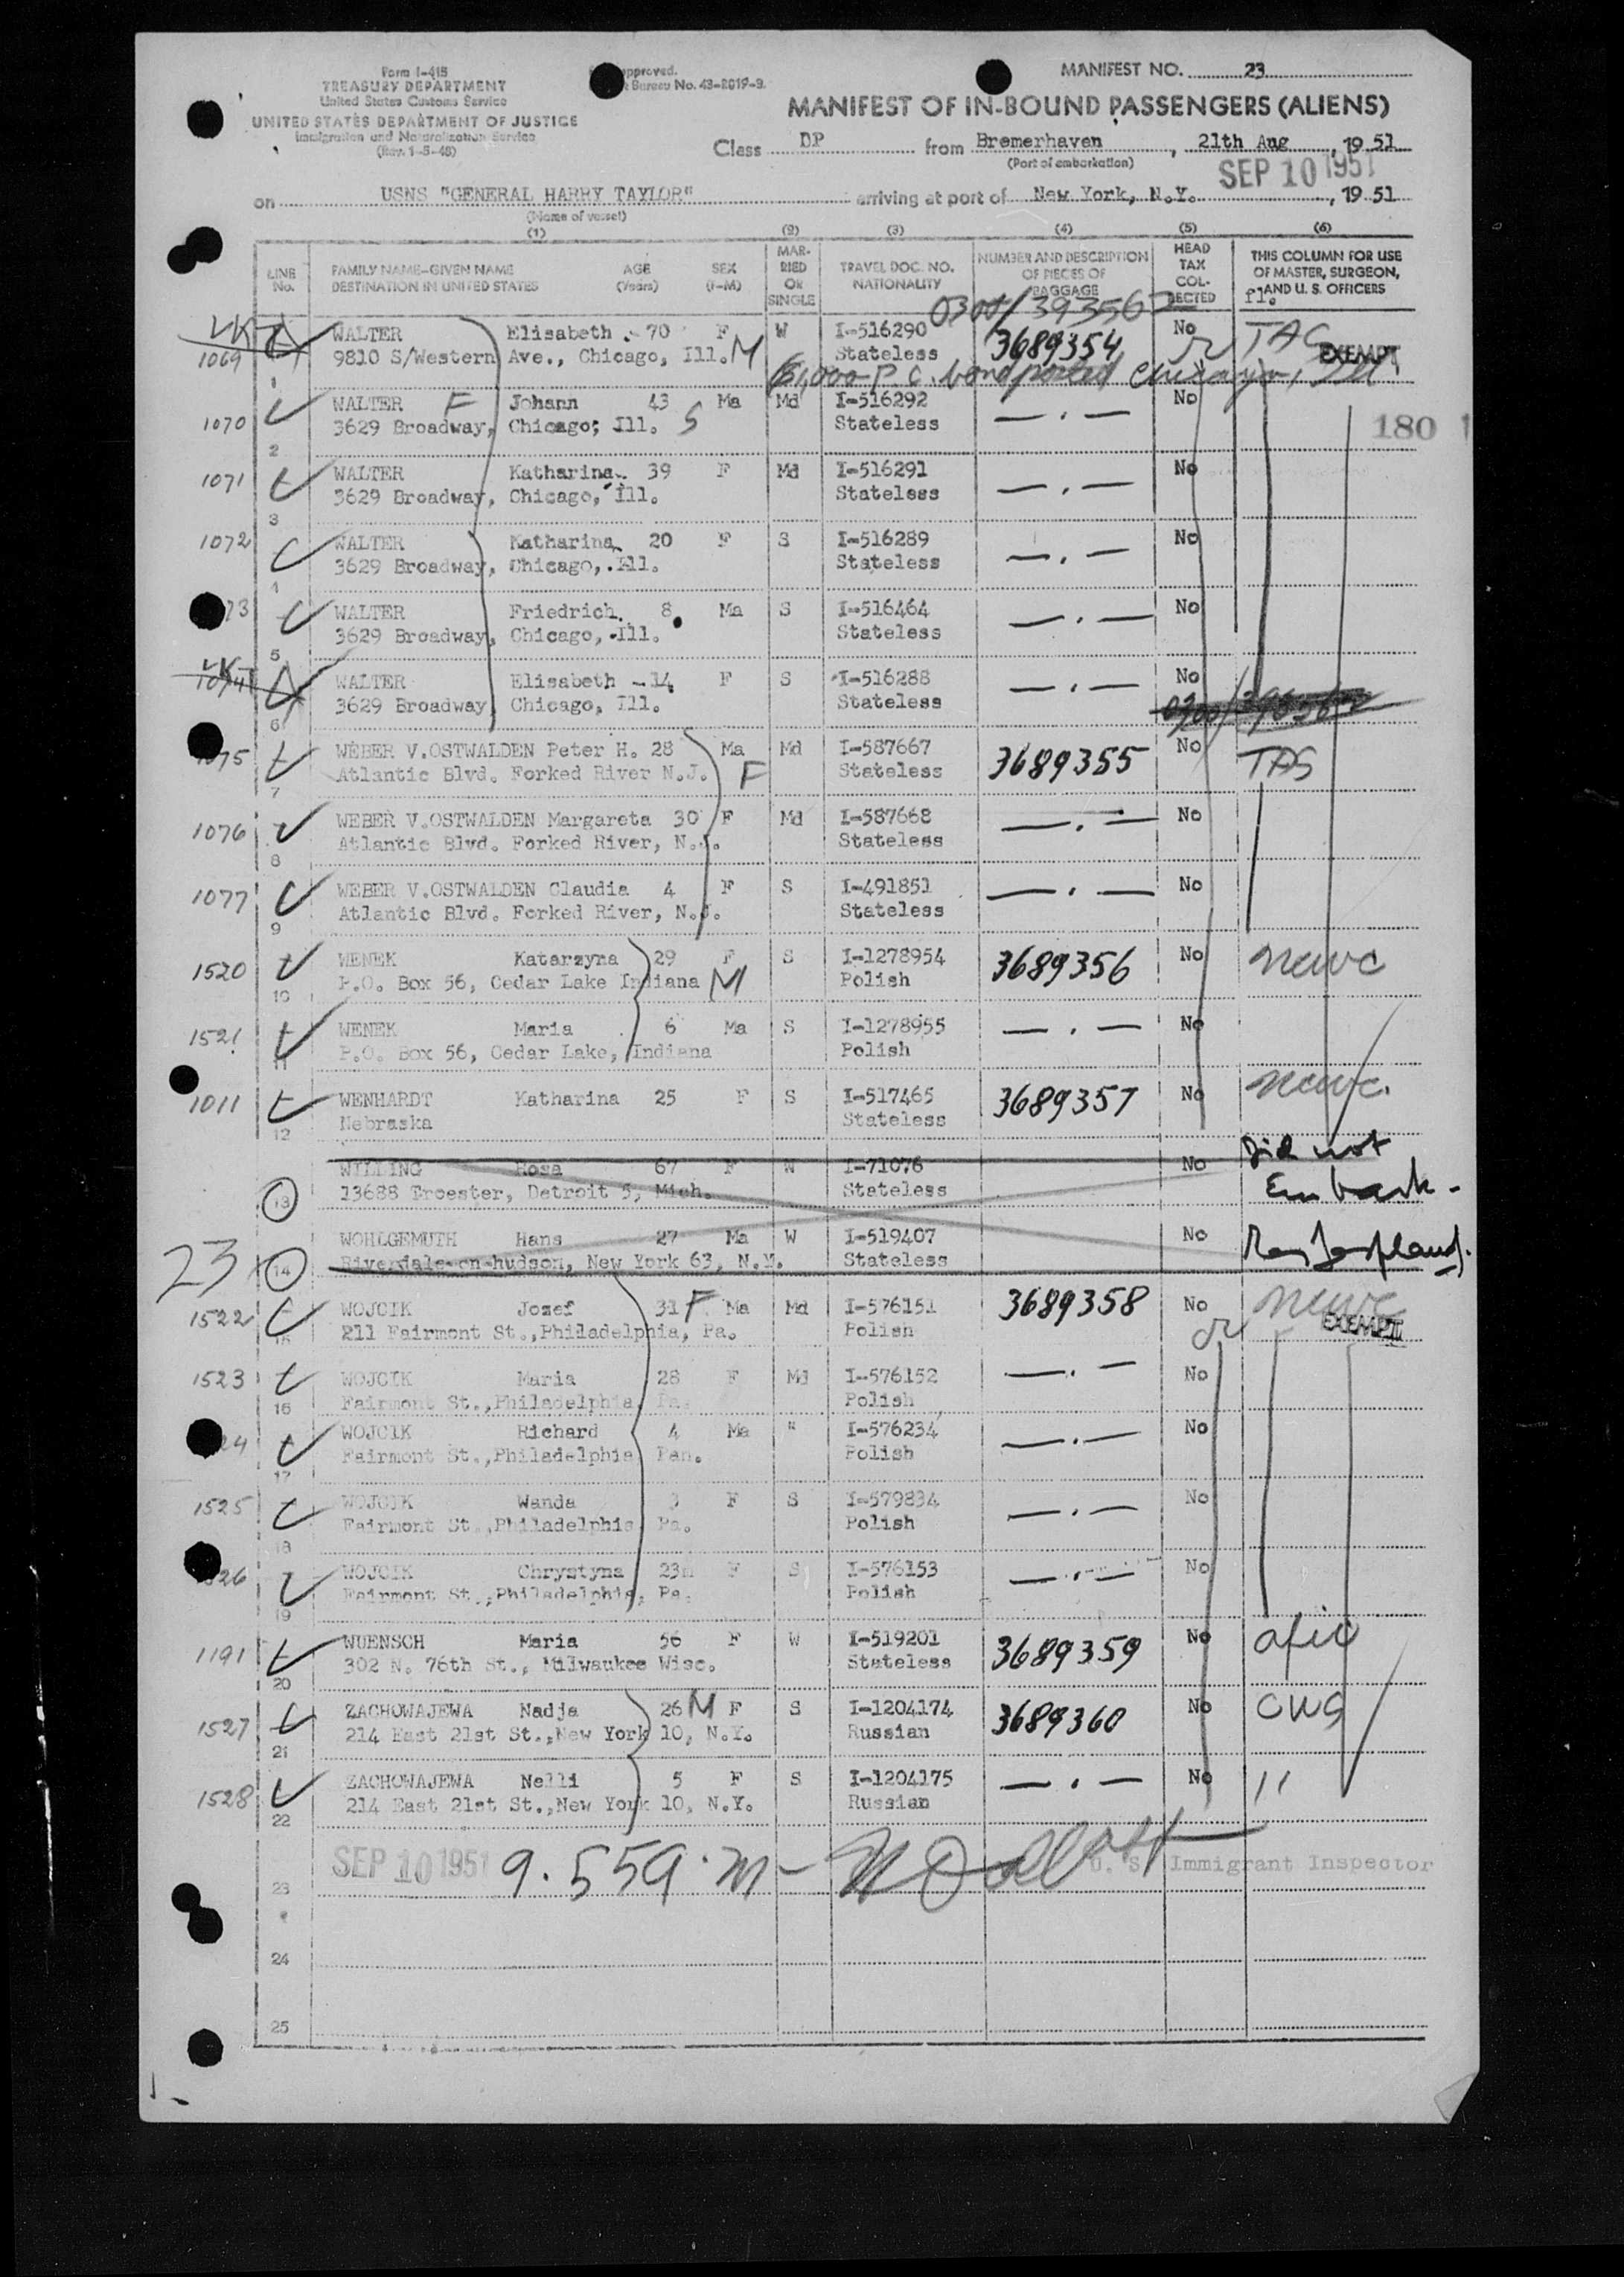 Form I-415
TREASURY DEPARTMENT
United States Customs Service
UNITED STATES DEPARTMENT OF JUSTICE
Immigration and Naturalization Service
(Rev. 1-5-48)
approved.
Bureau No. 43-R019-3.
MANIFEST NO. 23
MANIFEST OF IN-BOUND PASSENGERS (ALIENS)
Class DP from Bremerhaven, 21th Aug, 1951
(Port of embarkation)
SEP 10 1951
on USNS "GENERAL HARRY TAYLOR" arriving at port of New York, N.Y., 1951
(Name of vessel)
(1) (2) (3) (4) (5) (6)
LINE No. FAMILY NAME-GIVEN NAME DESTINATION IN UNITED STATES AGE (Years) SEX (F-M) MARRIED OR SINGLE TRAVEL DOC. NO. NATIONALITY NUMBER AND DESCRIPTION OF PIECES OF BAGGAGE HEAD TAX COLLECTED THIS COLUMN FOR USE OF MASTER, SURGEON, AND U. S. OFFICERS
fl.
0300/393562
1069 WALTER Elisabeth 70 F W I-516290 3689354 No TAS
9810 S/Western Ave., Chicago, Ill. M Stateless EXEMPT
1 P.C. bond posted Chicago, Ill.
1070 WALTER F Johann 43 Ma Md I-516292 —.— No
3629 Broadway, Chicago; Ill. S Stateless 180
2
1071 WALTER Katharina 39 F Md I-516291 —.— No
3629 Broadway, Chicago, Ill. Stateless
3
1072 WALTER Katharina 20 F S I-516289 —.— No
3629 Broadway, Chicago, Ill. Stateless
4
73 WALTER Friedrich 8 Ma S I-516464 —.— No
3629 Broadway, Chicago, Ill. Stateless
5
1074 WALTER Elisabeth 14 F S I-516288 —.— No
3629 Broadway, Chicago, Ill. Stateless
6
75 WEBER V.OSTWALDEN Peter H. 28 Ma Md I-587667 3689355 No TAS
Atlantic Blvd. Forked River N.J. F Stateless
7
1076 WEBER V.OSTWALDEN Margareta 30 F Md I-587668 —.— No
Atlantic Blvd. Forked River, N.J. Stateless
8
1077 WEBER V.OSTWALDEN Claudia 4 F S I-491851 —.— No
Atlantic Blvd. Forked River, N.J. Stateless
9
1520 WENEK Katarzyna 29 F S I-1278954 3689356 No newc
P.O. Box 56, Cedar Lake Indiana M Polish
10
1521 WENEK Maria 6 Ma S I-1278955 —.— No
P.O. Box 56, Cedar Lake, Indiana Polish
11
1011 WENHARDT Katharina 25 F S I-517465 3689357 No newc.
Nebraska Stateless
12
WILLING Rosa 67 F W I-71076 No Did not
13688 Troester, Detroit 5, Mich. Stateless Embark.
13
WOHLGEMUTH Hans 27 Ma W I-519407 No
23 14 Riverdale-on-hudson, New York 63, N.Y. Stateless
1522 WOJCIK Jozef 31 F Ma Md I-576151 3689358 No newc
211 Fairmont St.,Philadelphia, Pa. Polish EXEMPT
15
1523 WOJCIK Maria 28 F Md I-576152 —.— No
Fairmont St.,Philadelphia, Pa. Polish
16
24 WOJCIK Richard 4 Ma " I-576234 —.— No
Fairmont St.,Philadelphia Pan. Polish
17
1525 WOJCIK Wanda 3 F S I-579834 —.— No
Fairmont St.,Philadelphia Pa. Polish
18
26 WOJCIK Chrystyna 23m F S I-576153 —.— No
Fairmont St.,Philadelphia, Pa. Polish
19
1191 WUENSCH Maria 56 F W I-519201 3689359 No
302 N. 76th St., Milwaukee Wisc. Stateless
20
1527 ZACHOWAJEWA Nadja 26 M F S I-1204174 3689360 No CWS
214 East 21st St.,New York 10, N.Y. Russian
21
1528 ZACHOWAJEWA Nelli 5 F S I-1204175 —.— No "
214 East 21st St.,New York 10, N.Y. Russian
22
SEP 10 1951 9.55 U. S. Immigrant Inspector
23
24
25